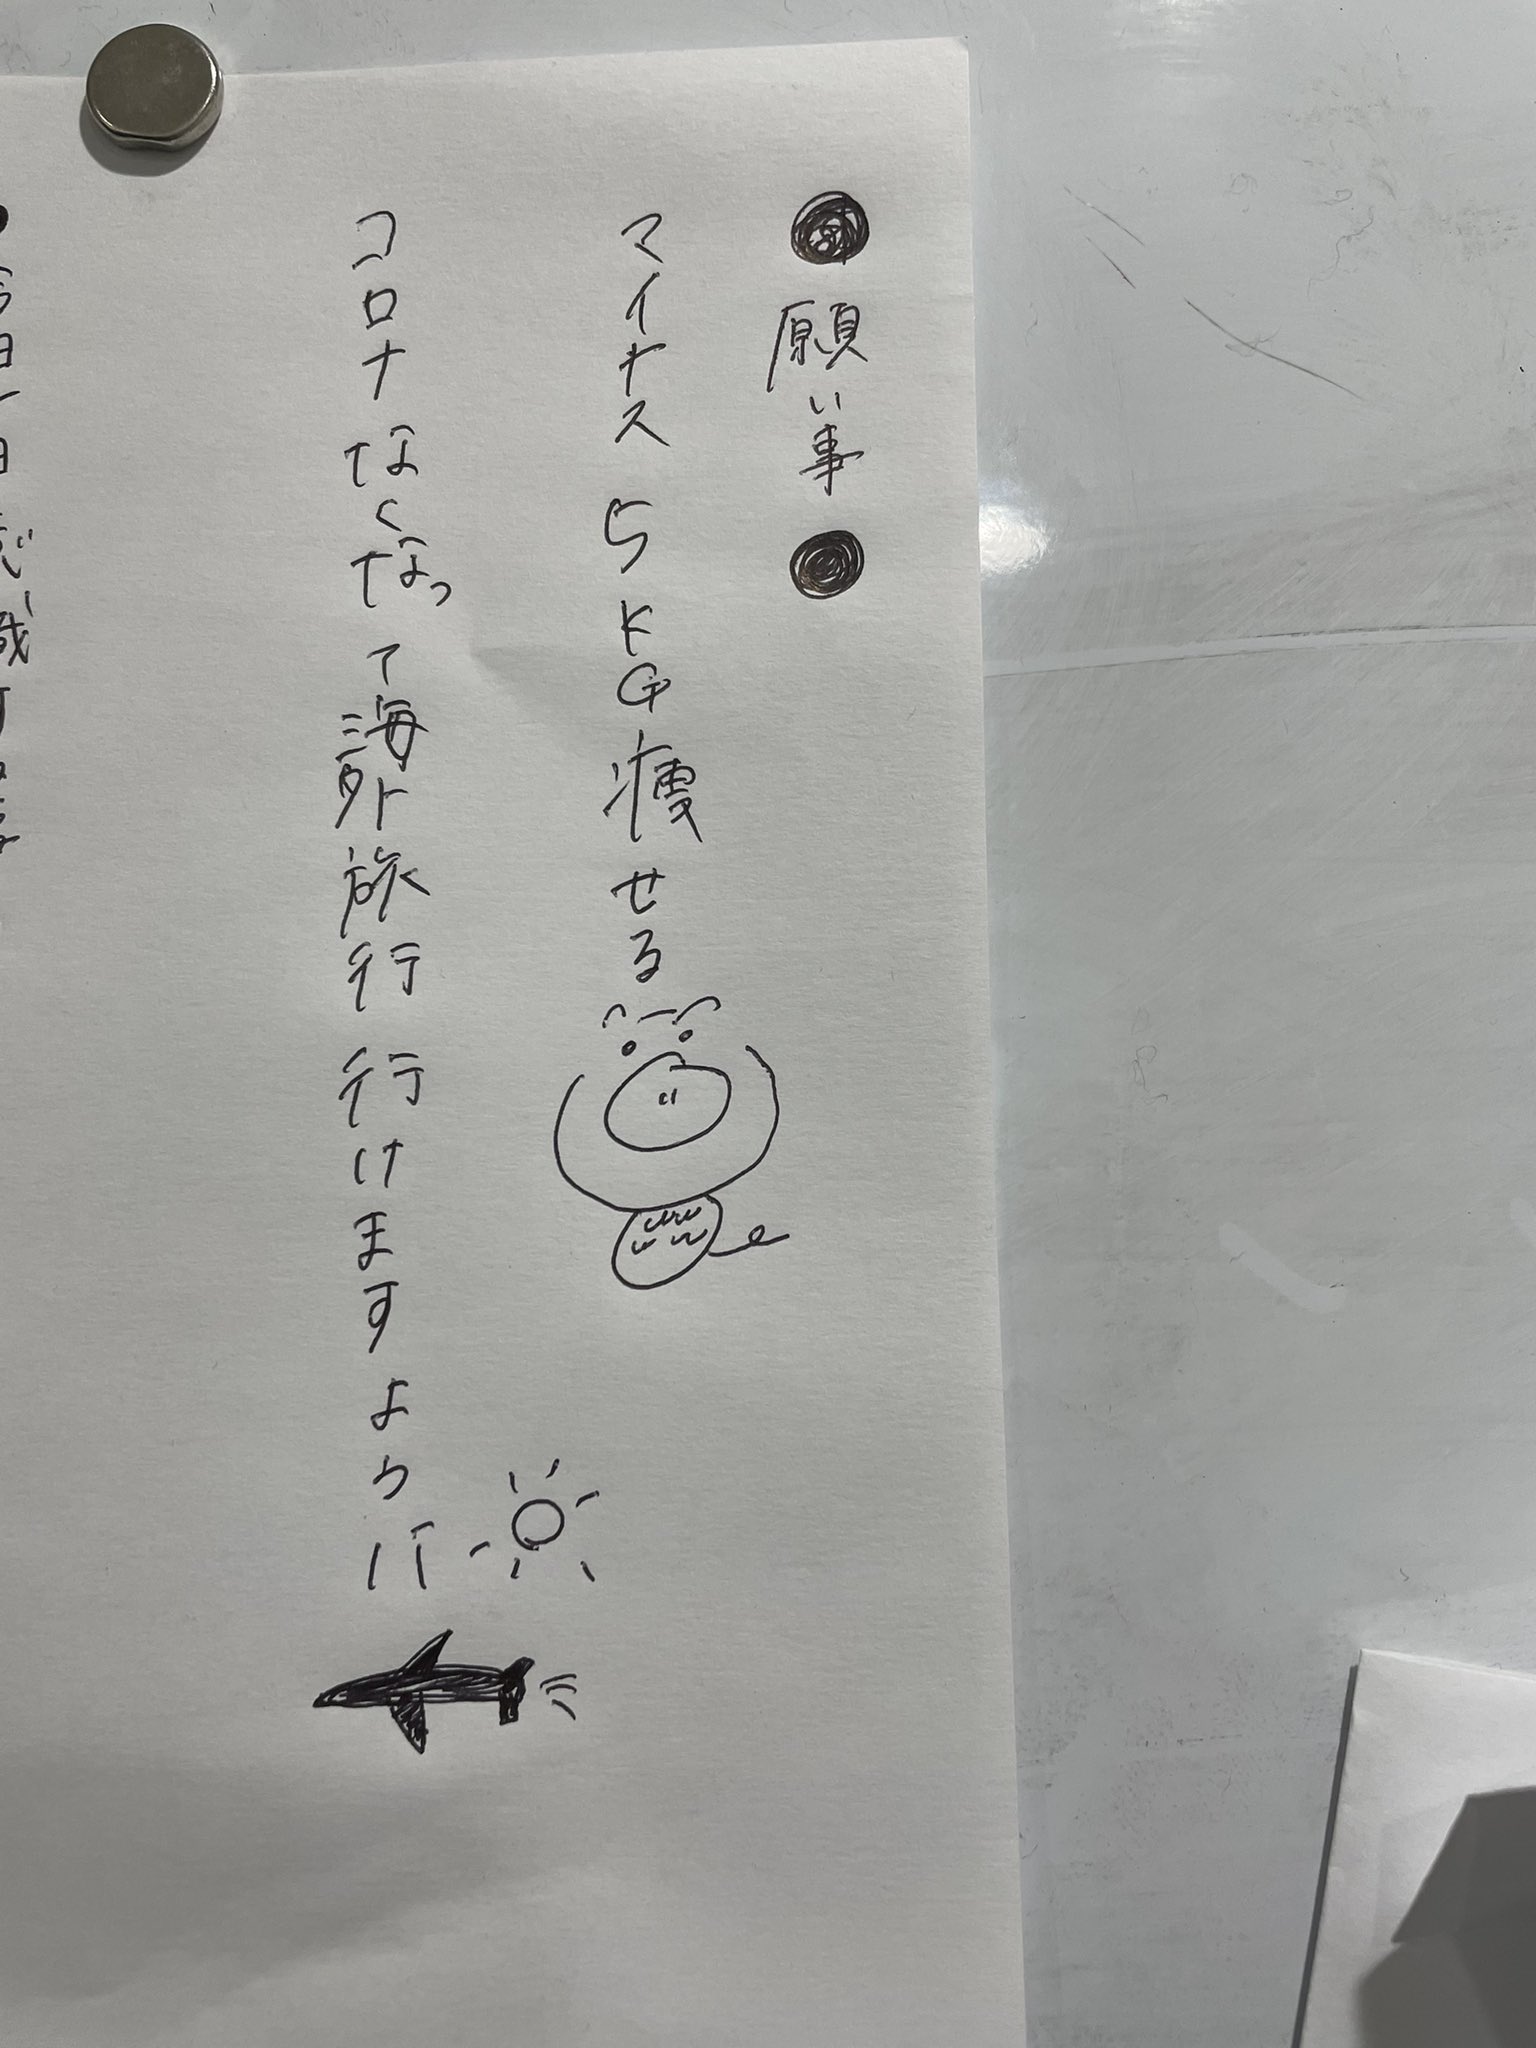 ●願い事●
マイナス5KG痩せる
コロナなくなって海外旅行行けますように